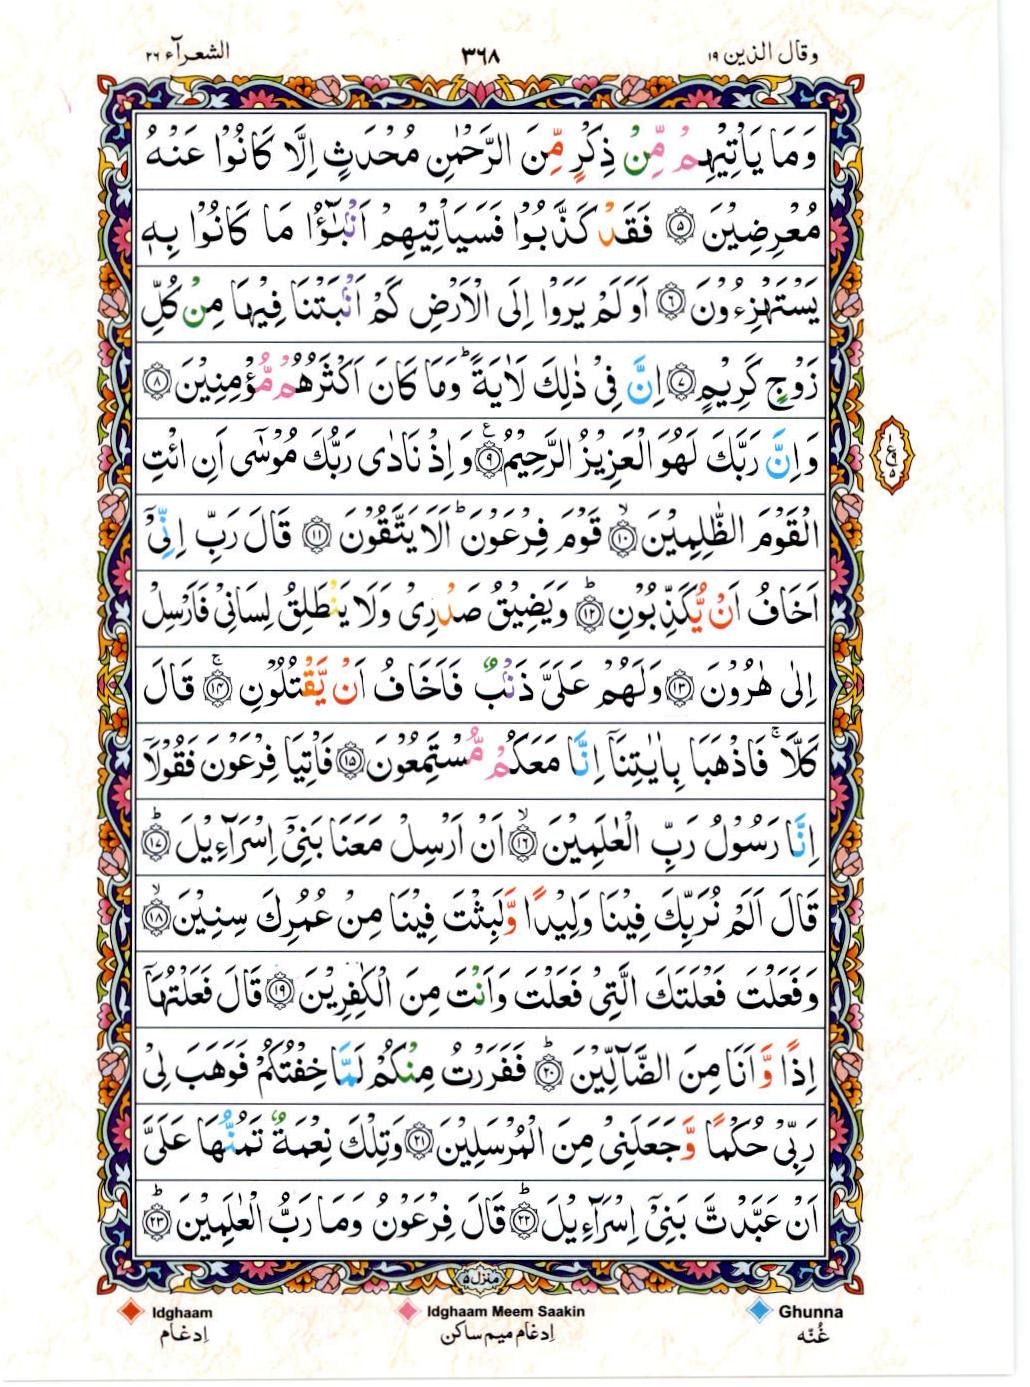 وقال الذين ۱۹
۳۶۸
الشعرآء ۲۶
وَمَا يَاْتِيْهِمْ مِّنْ ذِكْرٍ مِّنَ الرَّحْمٰنِ مُحْدَثٍ اِلَّا كَانُوْا عَنْهُ
مُعْرِضِيْنَ ۝۵ فَقَدْ كَذَّبُوْا فَسَيَاْتِيْهِمْ اَنْۢبٰٓؤُا مَا كَانُوْا بِهٖ
يَسْتَهْزِءُوْنَ ۝۶ اَوَلَمْ يَرَوْا اِلَى الْاَرْضِ كَمْ اَنْۢبَتْنَا فِيْهَا مِنْ كُلِّ
زَوْجٍ كَرِيْمٍ ۝۷ اِنَّ فِيْ ذٰلِكَ لَاٰيَةً ؕ وَمَا كَانَ اَكْثَرُهُمْ مُّؤْمِنِيْنَ ۝۸
وَاِنَّ رَبَّكَ لَهُوَ الْعَزِيْزُ الرَّحِيْمُ ۝۹ ع وَاِذْ نَادٰى رَبُّكَ مُوْسٰٓى اَنِ ائْتِ
الْقَوْمَ الظّٰلِمِيْنَ ۝۱۰ ۙ قَوْمَ فِرْعَوْنَ ؕ اَلَا يَتَّقُوْنَ ۝۱۱ قَالَ رَبِّ اِنِّيْٓ
اَخَافُ اَنْ يُّكَذِّبُوْنِ ۝۱۲ ؕ وَيَضِيْقُ صَدْرِيْ وَلَا يَنْطَلِقُ لِسَانِيْ فَاَرْسِلْ
اِلٰى هٰرُوْنَ ۝۱۳ وَلَهُمْ عَلَيَّ ذَنْۢبٌ فَاَخَافُ اَنْ يَّقْتُلُوْنِ ۝۱۴ ۚ قَالَ
كَلَّا ۚ فَاذْهَبَا بِاٰيٰتِنَآ اِنَّا مَعَكُمْ مُّسْتَمِعُوْنَ ۝۱۵ فَاْتِيَا فِرْعَوْنَ فَقُوْلَآ
اِنَّا رَسُوْلُ رَبِّ الْعٰلَمِيْنَ ۝۱۶ ۙ اَنْ اَرْسِلْ مَعَنَا بَنِيْٓ اِسْرَآءِيْلَ ۝۱۷ ؕ
قَالَ اَلَمْ نُرَبِّكَ فِيْنَا وَلِيْدًا وَّلَبِثْتَ فِيْنَا مِنْ عُمُرِكَ سِنِيْنَ ۝۱۸ ۙ
وَفَعَلْتَ فَعْلَتَكَ الَّتِيْ فَعَلْتَ وَاَنْتَ مِنَ الْكٰفِرِيْنَ ۝۱۹ قَالَ فَعَلْتُهَآ
اِذًا وَّاَنَا مِنَ الضَّآلِّيْنَ ۝۲۰ ؕ فَفَرَرْتُ مِنْكُمْ لَمَّا خِفْتُكُمْ فَوَهَبَ لِيْ
رَبِّيْ حُكْمًا وَّجَعَلَنِيْ مِنَ الْمُرْسَلِيْنَ ۝۲۱ وَتِلْكَ نِعْمَةٌ تَمُنُّهَا عَلَيَّ
اَنْ عَبَّدْتَّ بَنِيْٓ اِسْرَآءِيْلَ ۝۲۲ ؕ قَالَ فِرْعَوْنُ وَمَا رَبُّ الْعٰلَمِيْنَ ۝۲۳ ؕ
منزل ۵
Idghaam
Idghaam Meem Saakin
Ghunna
اِدغام
اِدغام ميم ساكن
غُنّه